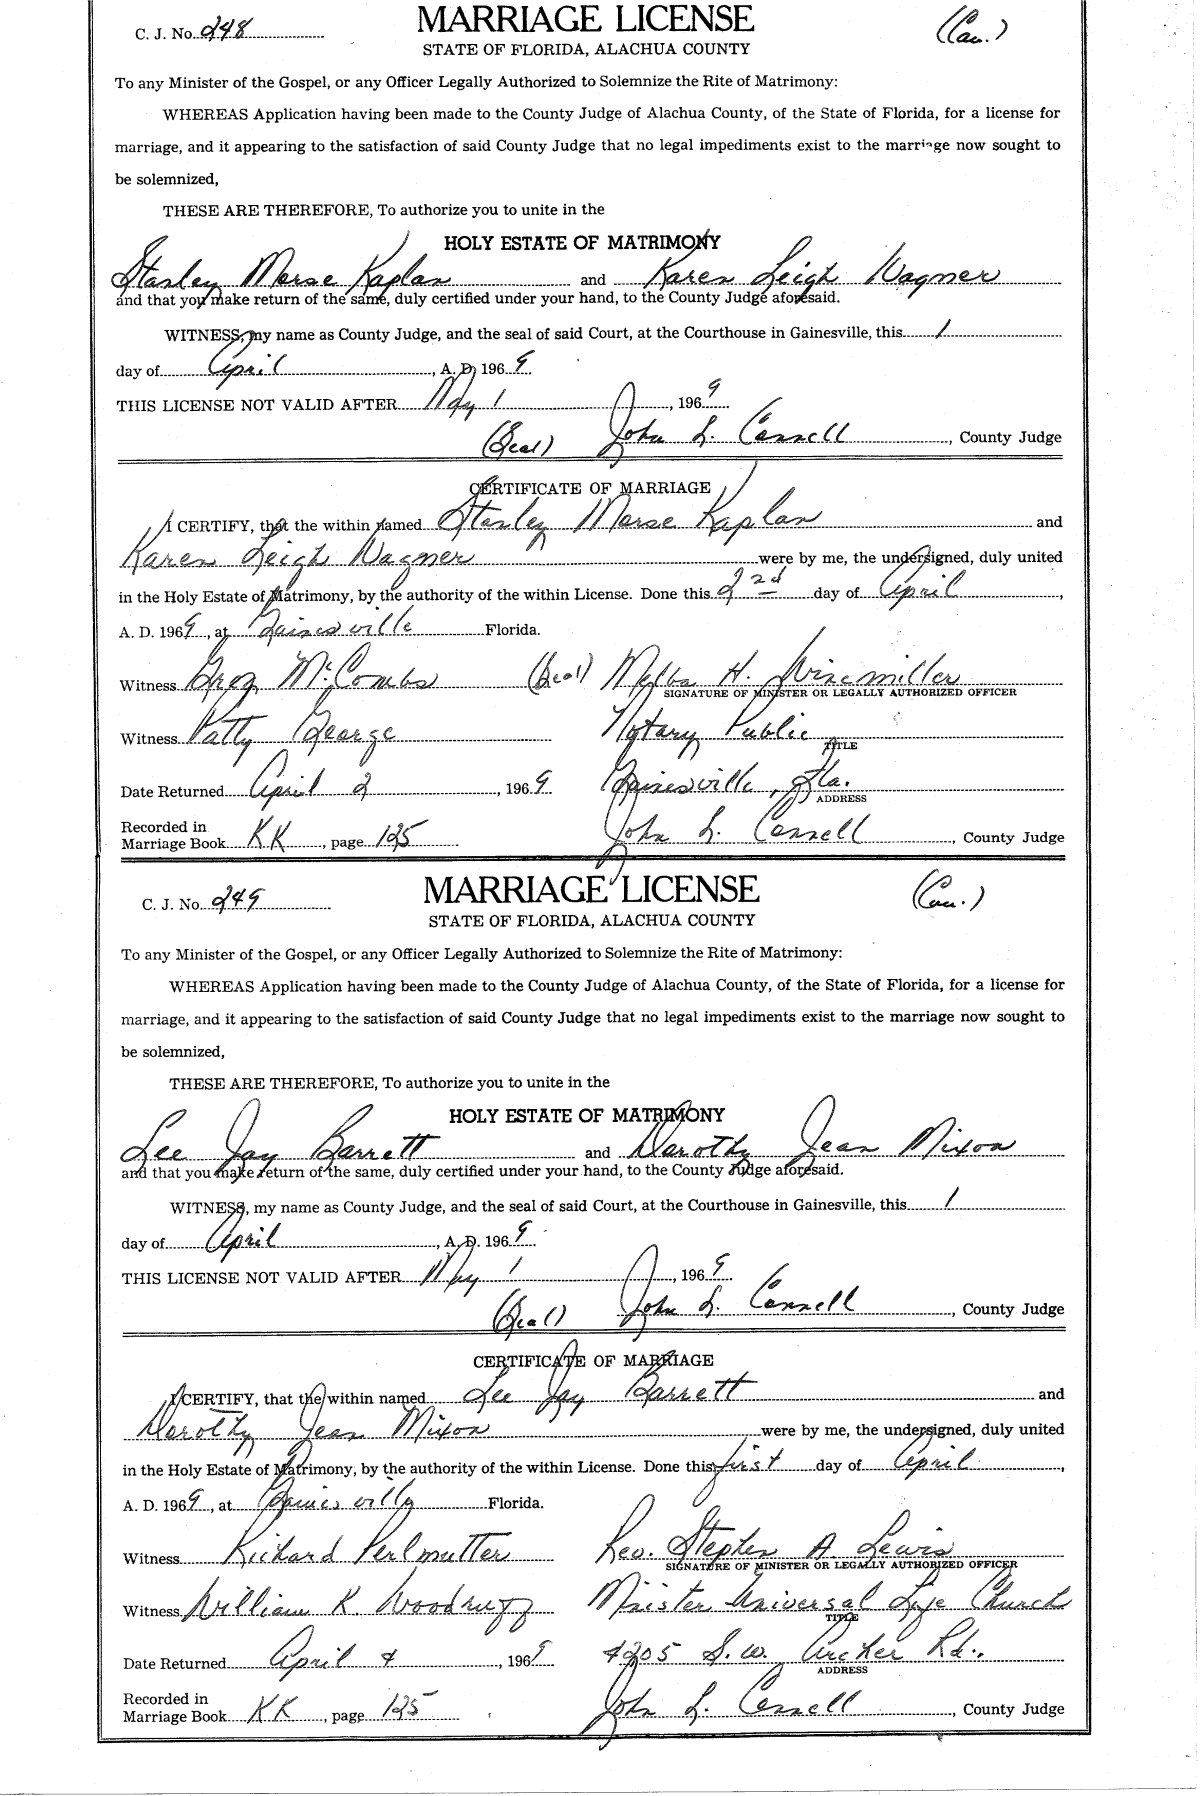 C. J. No. 248 MARRIAGE LICENSE (Cau.)
STATE OF FLORIDA, ALACHUA COUNTY
To any Minister of the Gospel, or any Officer Legally Authorized to Solemnize the Rite of Matrimony:
WHEREAS Application having been made to the County Judge of Alachua County, of the State of Florida, for a license for
marriage, and it appearing to the satisfaction of said County Judge that no legal impediments exist to the marriage now sought to
be solemnized,
THESE ARE THEREFORE, To authorize you to unite in the
HOLY ESTATE OF MATRIMONY
Stanley Morse Kaplan and Karen Leigh Wagner
and that you make return of the same, duly certified under your hand, to the County Judge aforesaid.
WITNESS, my name as County Judge, and the seal of said Court, at the Courthouse in Gainesville, this 1
day of April, A. D. 1969
THIS LICENSE NOT VALID AFTER May 1, 1969
(Seal) John L. Connell, County Judge
CERTIFICATE OF MARRIAGE
I CERTIFY, that the within named Stanley Morse Kaplan and
Karen Leigh Wagner were by me, the undersigned, duly united
in the Holy Estate of Matrimony, by the authority of the within License. Done this 2nd day of April,
A. D. 1969, at Gainesville Florida.
Witness Greg McCombs (Seal) Melba H. Winemiller
SIGNATURE OF MINISTER OR LEGALLY AUTHORIZED OFFICER
Witness Patty George Notary Public
TITLE
Date Returned April 2, 1969 Gainesville, Fla.
ADDRESS
Recorded in
Marriage Book KK, page 125 John L. Connell, County Judge
C. J. No. 249 MARRIAGE LICENSE (Cau.)
STATE OF FLORIDA, ALACHUA COUNTY
To any Minister of the Gospel, or any Officer Legally Authorized to Solemnize the Rite of Matrimony:
WHEREAS Application having been made to the County Judge of Alachua County, of the State of Florida, for a license for
marriage, and it appearing to the satisfaction of said County Judge that no legal impediments exist to the marriage now sought to
be solemnized,
THESE ARE THEREFORE, To authorize you to unite in the
HOLY ESTATE OF MATRIMONY
Lee Jay Barrett and Dorothy Jean Mixon
and that you make return of the same, duly certified under your hand, to the County Judge aforesaid.
WITNESS, my name as County Judge, and the seal of said Court, at the Courthouse in Gainesville, this 1
day of April, A. D. 1969
THIS LICENSE NOT VALID AFTER May 1, 1969
(Seal) John L. Connell, County Judge
CERTIFICATE OF MARRIAGE
I CERTIFY, that the within named Lee Jay Barrett and
Dorothy Jean Mixon were by me, the undersigned, duly united
in the Holy Estate of Matrimony, by the authority of the within License. Done this first day of April,
A. D. 1969, at Gainesville Florida.
Witness Richard Perlmutter Rev. Stephen A. Lewis
SIGNATURE OF MINISTER OR LEGALLY AUTHORIZED OFFICER
Witness William K. Woodruff Minister Universal Life Church
TITLE
Date Returned April 4, 1969 4205 S.W. Archer Rd.
ADDRESS
Recorded in
Marriage Book KK, page 125 John L. Connell, County Judge